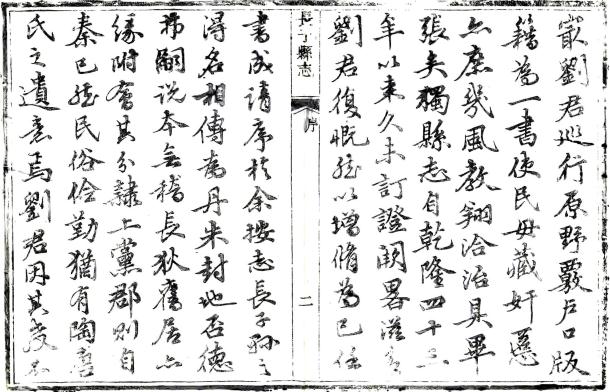 嚴劉君巡行原野覈戶口版
籍為一書使民毋藏奸慝
亦庶幾風教翔洽治具畢
張矣獨縣志自乾隆四十三
年以來久未訂證闕畧滋多
劉君復慨然以增脩為己任
長子縣志
序
二
書成請序於余按志長子縣之
得名相傳為丹朱封地否德
弗嗣說本無稽長狄舊居亦
緣附會其分隸上黨郡則自
秦已然民俗儉勤猶有陶唐
氏之遺意焉劉君因其